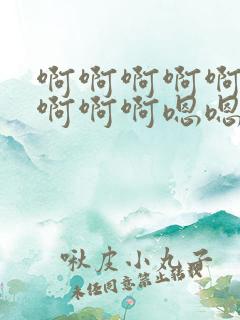 啊啊啊啊啊
啊啊啊嗯嗯
啾皮小丸子
未经同意禁止转载